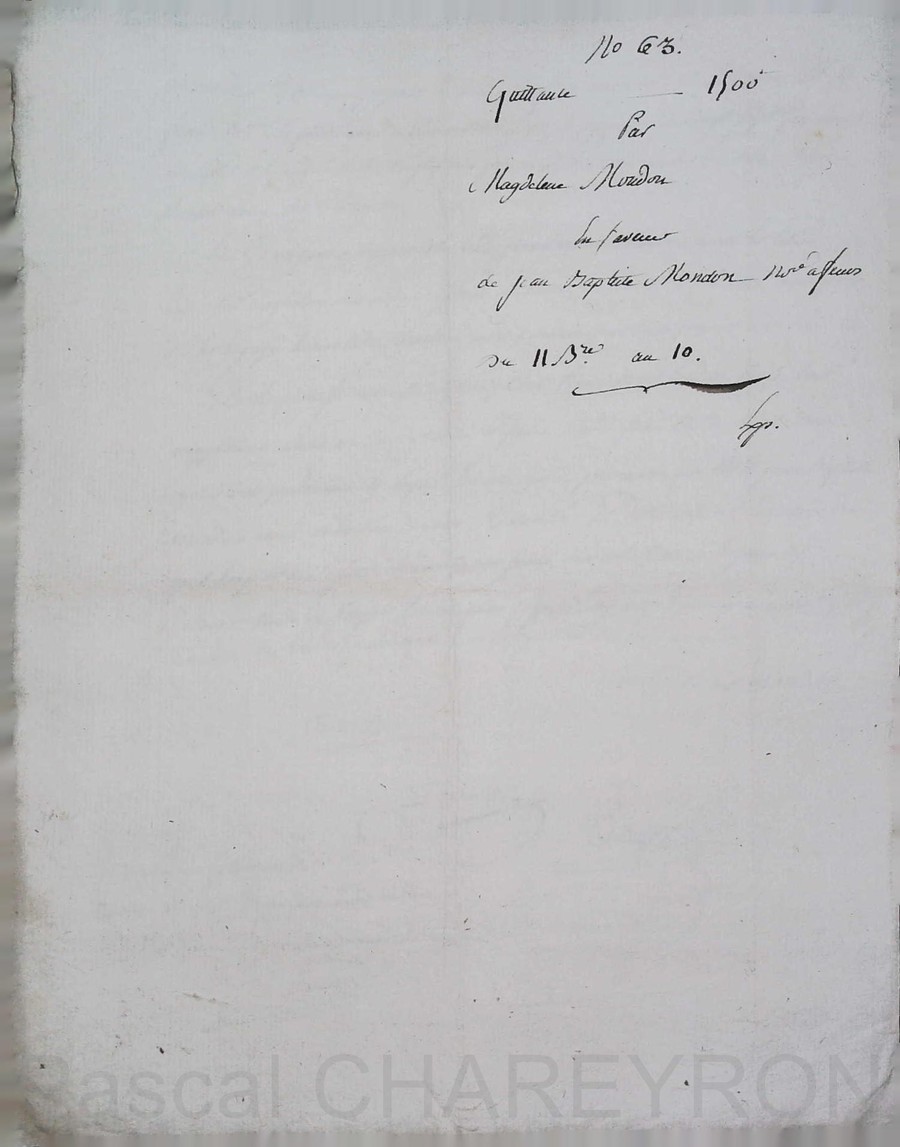 No 63.
Quittance — 1500
Par
Magdelene Mondon
En faveur
de Jean Baptiste Mondon Nore a
Du 11 Bre au 10.
Pascal CHAREYRON